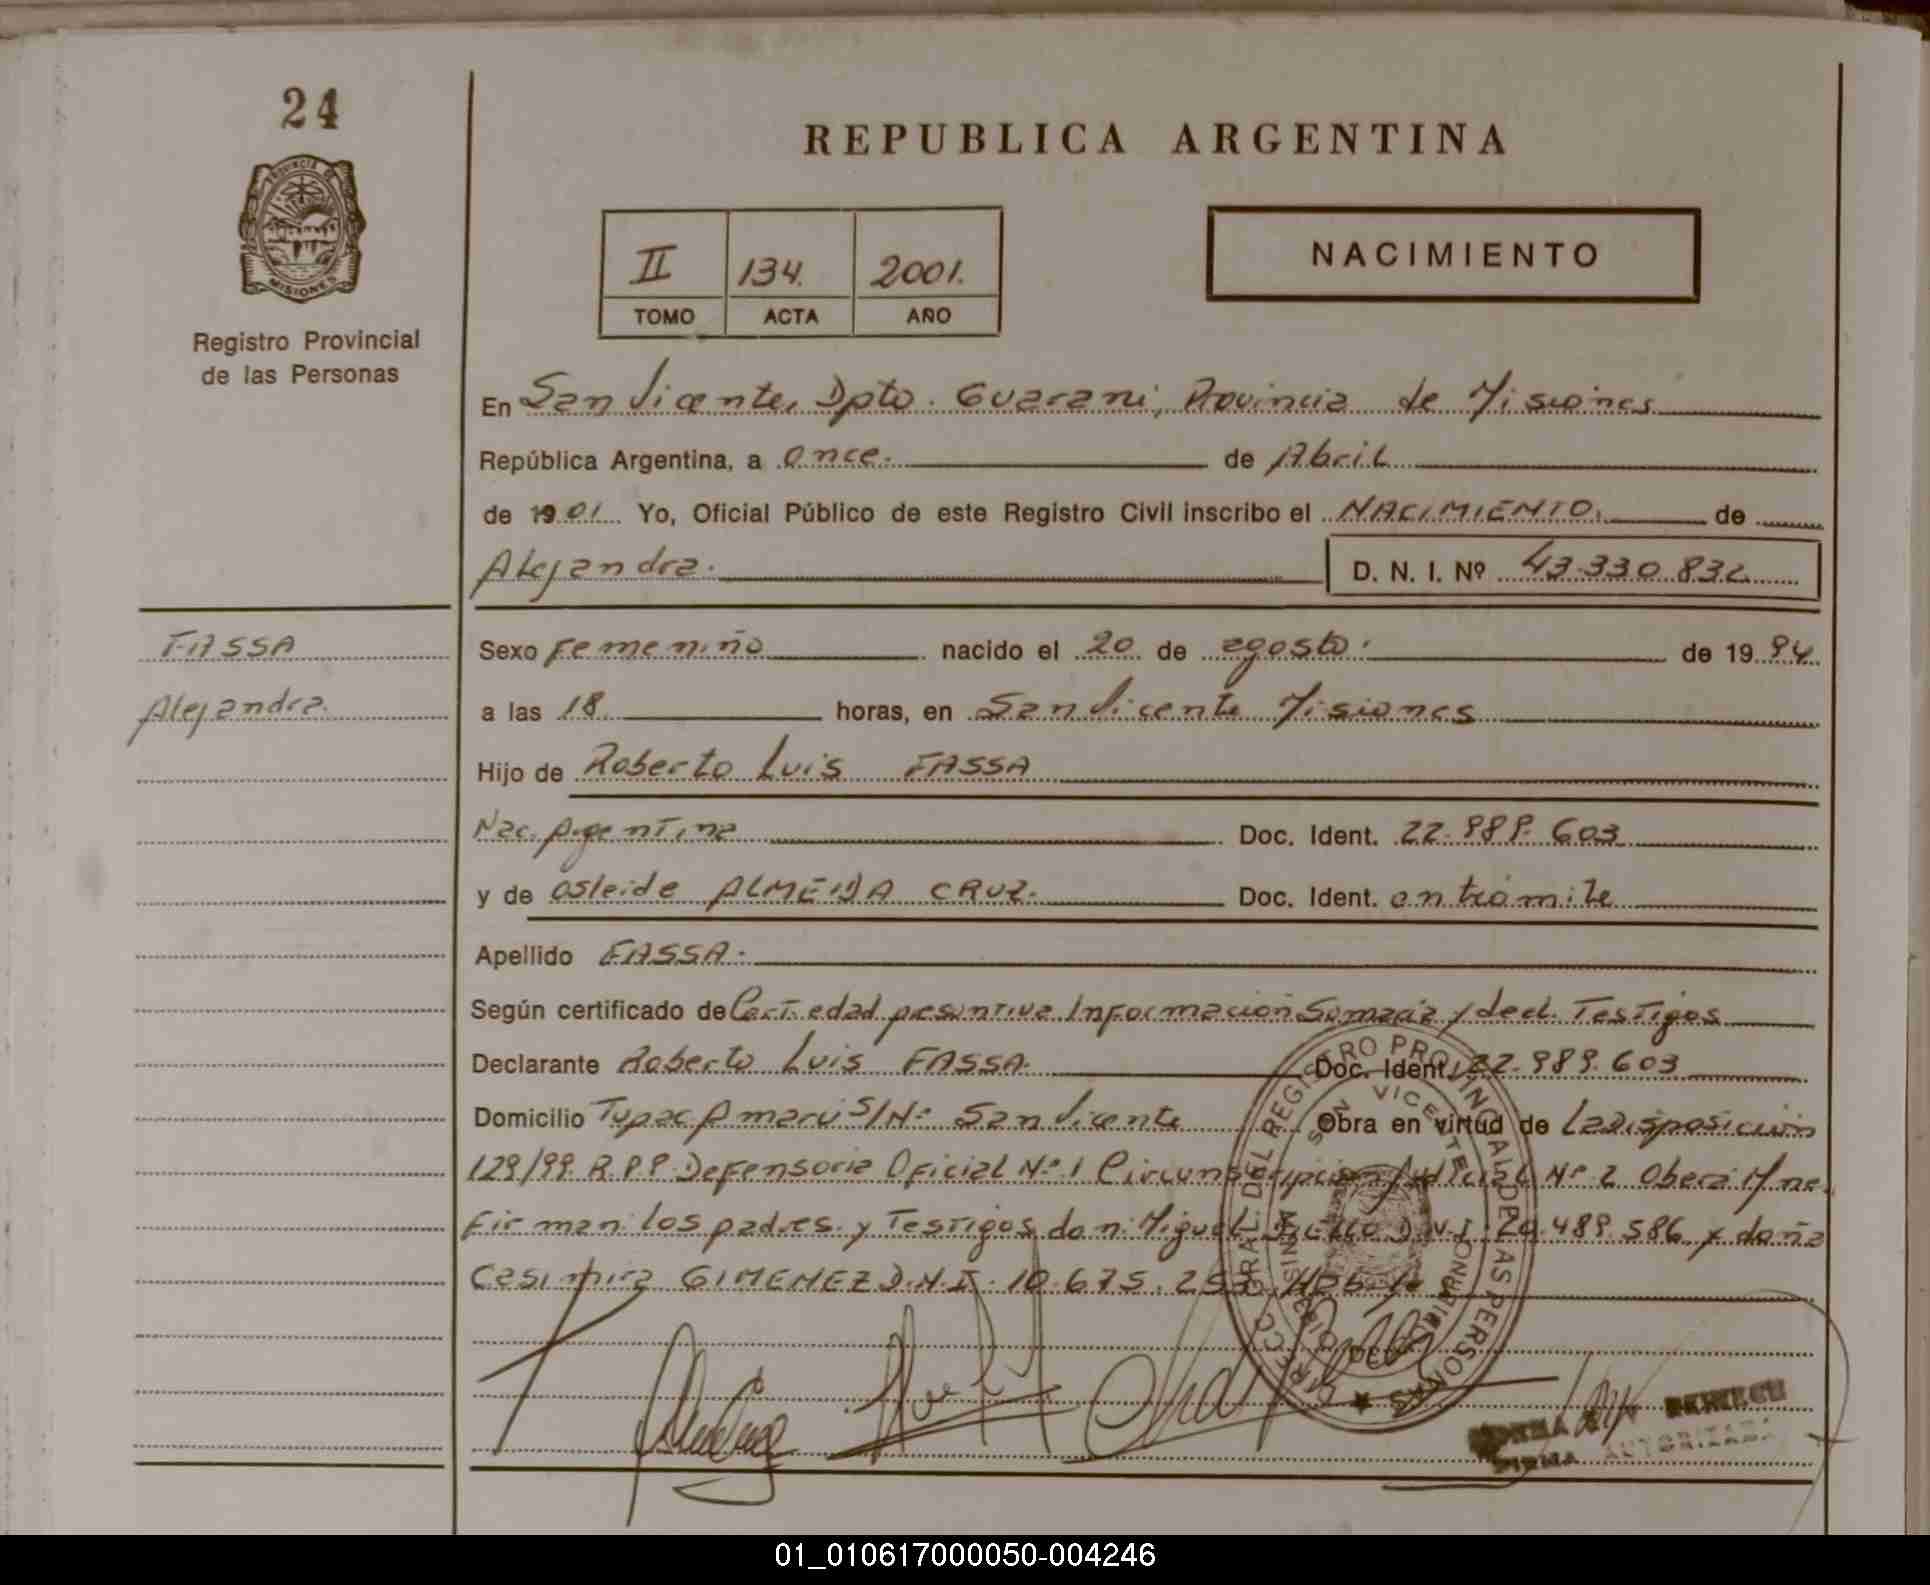 24
REPUBLICA ARGENTINA
PROVINCIA DE
MISIONES
Registro Provincial
de las Personas
II 134. 2001.
TOMO ACTA AÑO
NACIMIENTO
En San Vicente, Dpto. Guarani, Provincia de Misiones
República Argentina, a once. de Abril
de 19 01 Yo, Oficial Público de este Registro Civil inscribo el NACIMIENTO. de
Alejandra. D. N. I. Nº 43.330.832
FASSA
Alejandra.
Sexo Femenino nacido el 20 de agosto. de 19 94
a las 18 horas, en San Vicente Misiones
Hijo de Roberto Luis FASSA
Nac. Argentina Doc. Ident. 22.989.603
y de Osleide ALMEIDA CRUZ. Doc. Ident. en trámite
Apellido FASSA.
Según certificado de Cert. edad presuntiva Información Sumaria y decl. Testigos
Declarante Roberto Luis FASSA. Doc. Ident. 22.989.603
Domicilio Tupac Amarú S/Nº San Vicente Obra en virtud de La Disposición
129/99. R.P.P. Defensoria Oficial Nº 1 Circunscripción Judicial Nº 2 Oberá Mnes.
Firman: los padres y Testigos don: Miguel D.N.I. 20.489.586 y doña
Casimira GIMENEZ D.N.I. 10.675.253
DIRECC. GRAL. DEL REGISTRO PROVINCIAL DE LAS PERSONAS
SAN VICENTE
FIRMA AUTORIZADA
01_010617000050-004246